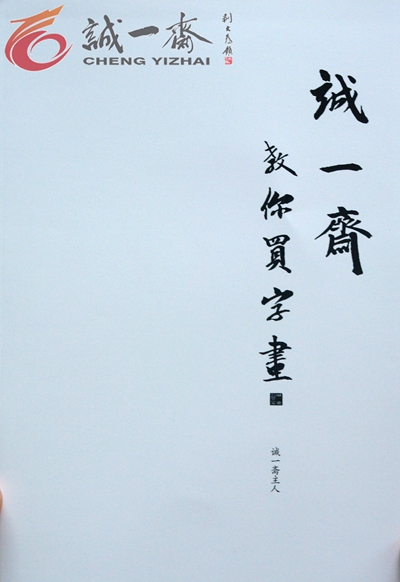 誠一齋
CHENG YIZHAI
誠一齋
教你買字畫
诚一斋主人